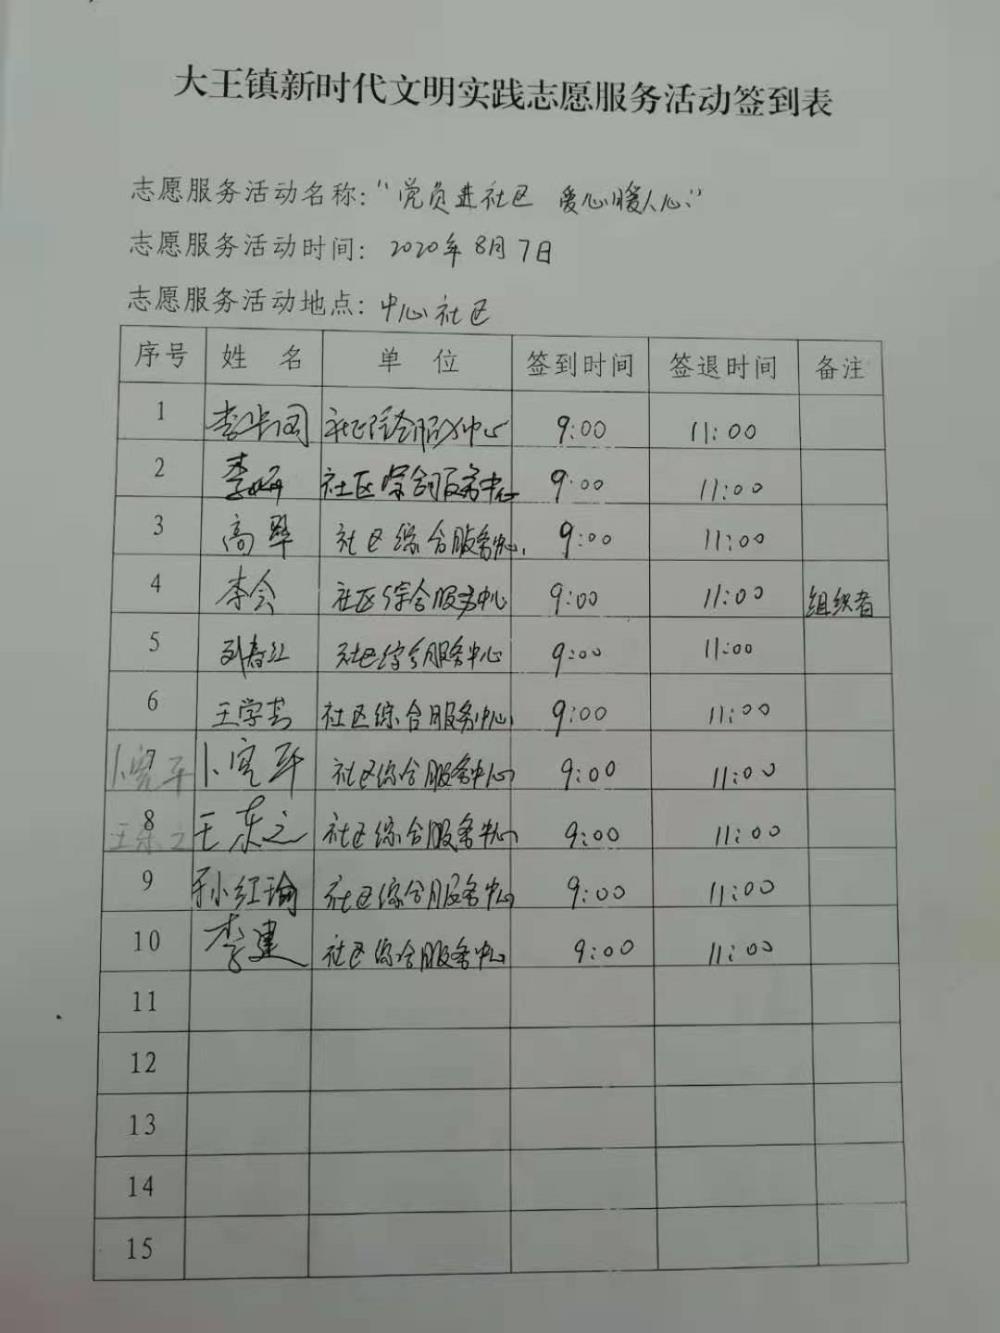 大王镇新时代文明实践志愿服务活动签到表
志愿服务活动名称:"党员进社区 爱心暖人心"
志愿服务活动时间: 2020年8月7日
志愿服务活动地点: 中心社区
序号 姓 名 单 位 签到时间 签退时间 备注
1 社区综合服务中心 9:00 11:00
2 李妍 社区综合服务中心 9:00 11:00
3 高翠 社区综合服务中心 9:00 11:00
4 李会 社区综合服务中心 9:00 11:00 组织者
5 刘春红 社区综合服务中心 9:00 11:00
6 王学芸 社区综合服务中心 9:00 11:00
7 卜宪军 社区综合服务中心 9:00 11:00
8 王东之 社区综合服务中心 9:00 11:00
9 孙红瑜 社区综合服务中心 9:00 11:00
10 李建 社区综合服务中心 9:00 11:00
11
12
13
14
15